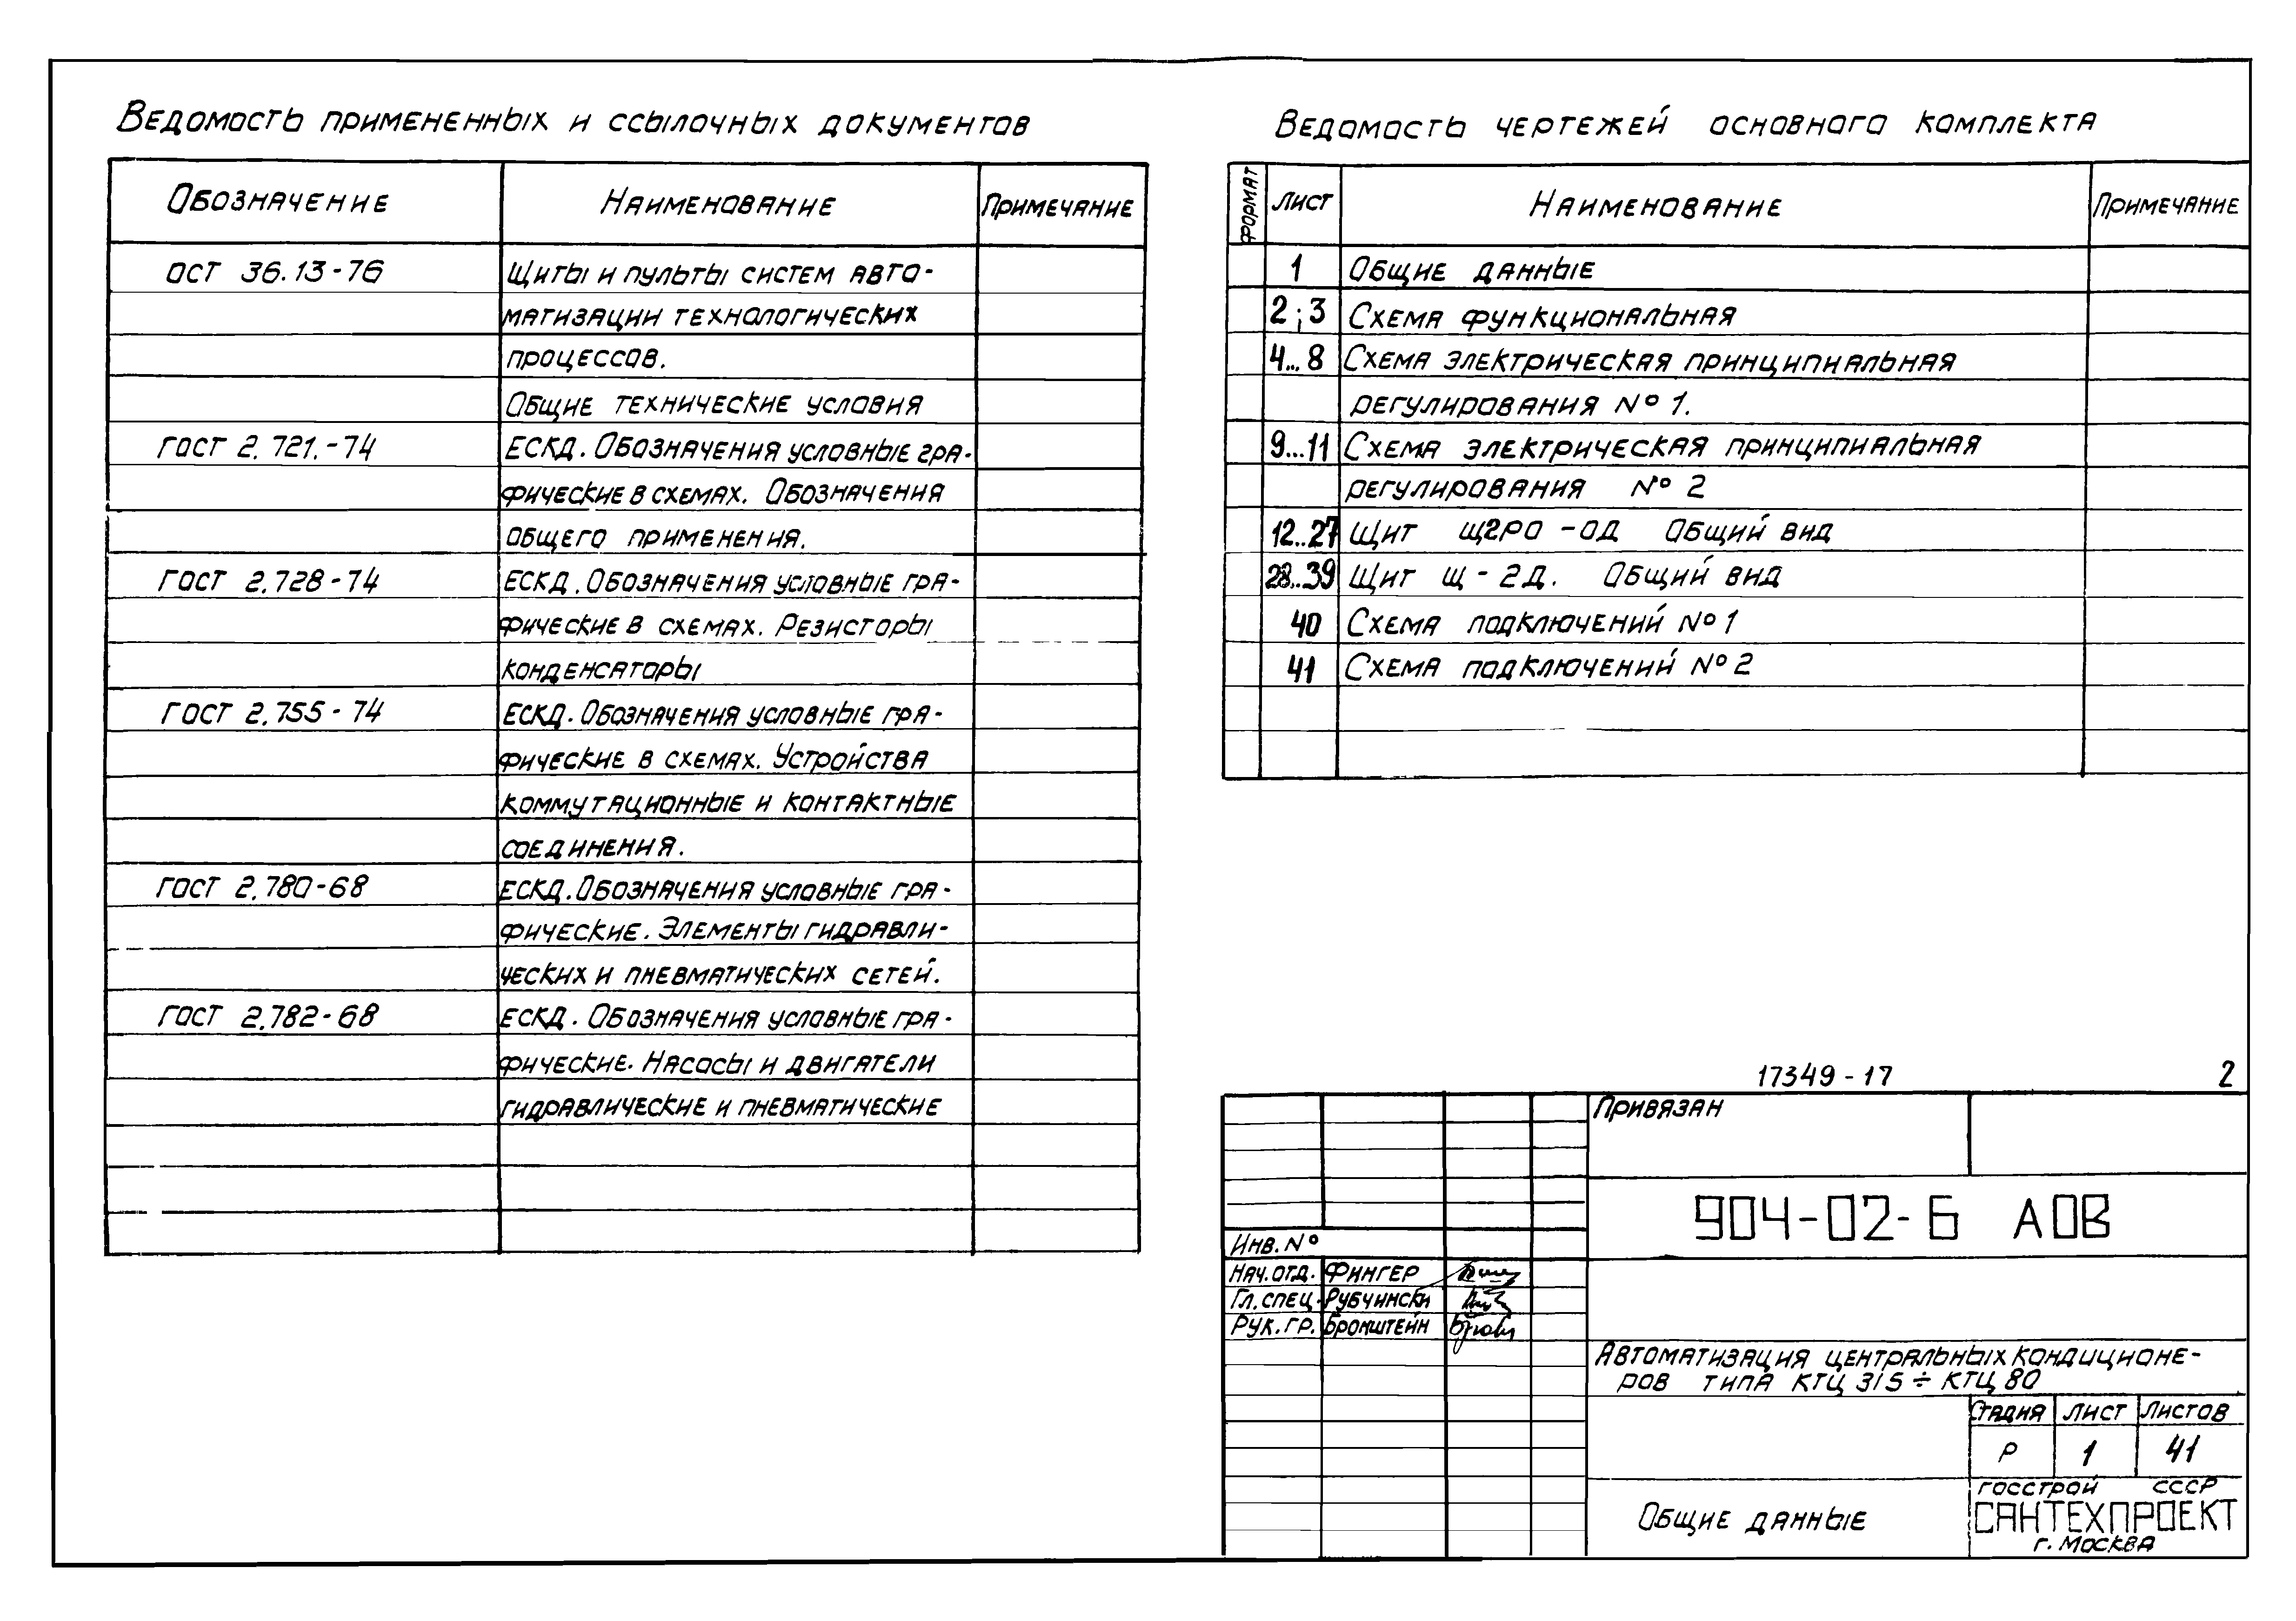 Ведомость примененных и ссылочных документов
Обозначение Наименование Примечание
ОСТ 36.13-76 Щиты и пульты систем авто-
матизации технологических
процессов.
Общие технические условия
ГОСТ 2.721.-74 ЕСКД. Обозначения условные гра-
фические в схемах. Обозначения
общего применения.
ГОСТ 2.728-74 ЕСКД. Обозначения условные гра-
фические в схемах. Резисторы
конденсаторы
ГОСТ 2.755-74 ЕСКД. Обозначения условные гра-
фические в схемах. Устройства
коммутационные и контактные
соединения.
ГОСТ 2.780-68 ЕСКД. Обозначения условные гра-
фические. Элементы гидравли-
ческих и пневматических сетей.
ГОСТ 2.782-68 ЕСКД. Обозначения условные гра-
фические. Насосы и двигатели
гидравлические и пневматические
Ведомость чертежей основного комплекта
Формат Лист Наименование Примечание
1 Общие данные
2;3 Схема функциональная
4...8 Схема электрическая принципиальная
регулирования №1.
9...11 Схема электрическая принципиальная
регулирования №2
12..27 Щит ЩРО-ОД Общий вид
28..39 Щит Щ-2Д. Общий вид
40 Схема подключений №1
41 Схема подключений №2
17349-17 2
Привязан
904-02-6 АОВ
Инв. №
Нач. отд. Фингер
Гл. спец. Рубчински
Рук. гр. Бронштейн
Автоматизация центральных кондиционе-
ров типа КТЦ 315÷КТЦ 80
Стадия Лист Листов
Р 1 41
Общие данные
Госстрой СССР
САНТЕХПРОЕКТ
г. Москва